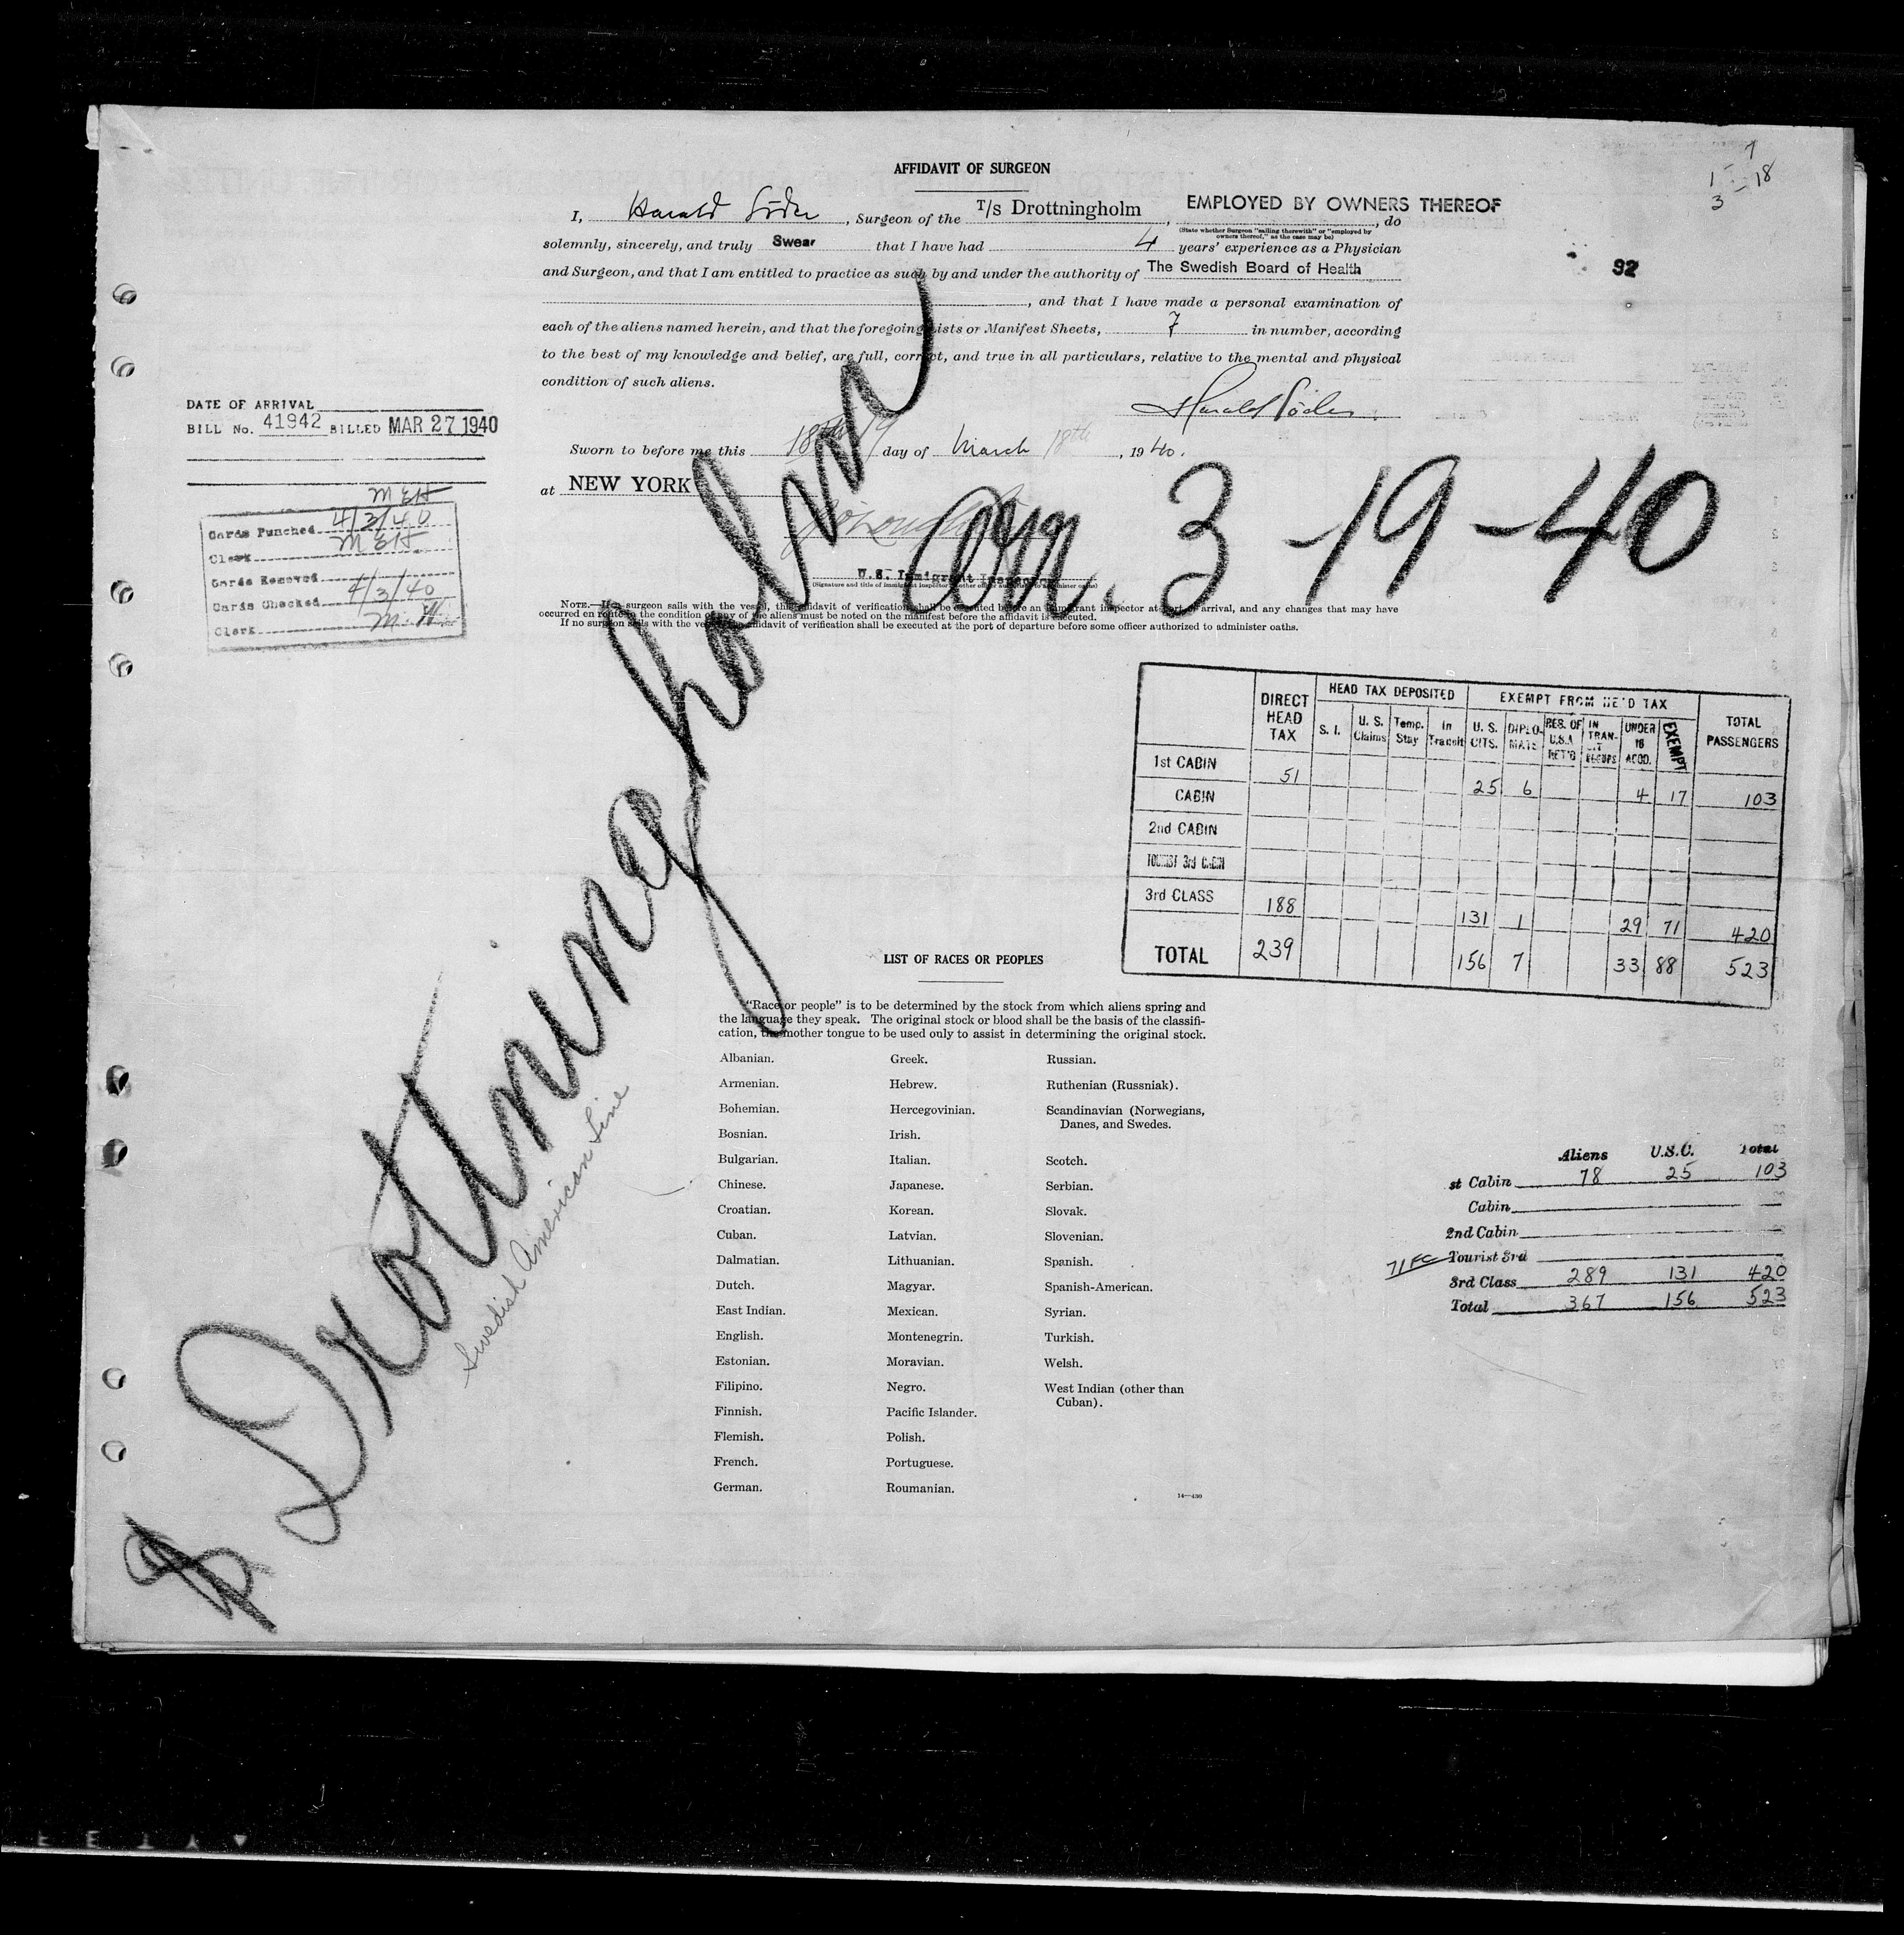 AFFIDAVIT OF SURGEON
I, Harald Söder, Surgeon of the T/s Drottningholm, EMPLOYED BY OWNERS THEREOF, do
(State whether Surgeon "sailing therewith" or "employed by owners thereof," as the case may be)
solemnly, sincerely, and truly Swear that I have had 4 years' experience as a Physician
and Surgeon, and that I am entitled to practice as such by and under the authority of The Swedish Board of Health
, and that I have made a personal examination of
each of the aliens named herein, and that the foregoing Lists or Manifest Sheets, 7 in number, according
to the best of my knowledge and belief, are full, correct, and true in all particulars, relative to the mental and physical
condition of such aliens.
Harald Söder
Sworn to before me this 18th 19 day of March 18th, 1940.
at NEW YORK
U.S. Immigrant Inspector
(Signature and title of immigrant inspector or other officer authorized to administer oaths)
NOTE.—If a surgeon sails with the vessel, this affidavit of verification shall be executed before an immigrant inspector at port of arrival, and any changes that may have
occurred en route in the condition of any of the aliens must be noted on the manifest before the affidavit is executed.
If no surgeon sails with the vessel, the affidavit of verification shall be executed at the port of departure before some officer authorized to administer oaths.
7
1 - 18
3
92
DATE OF ARRIVAL
BILL No. 41942 BILLED MAR 27 1940
MEH
Cards Punched 4/3/40
Clerk MEH
Cards Removed
Cards Checked 4/3/40
Clerk M.H.
Drottningholm
Swedish American Line
am. 3-19-40
DIRECT HEAD TAX HEAD TAX DEPOSITED EXEMPT FROM HEAD TAX TOTAL PASSENGERS
S. I. U. S. Claims Temp. Stay In Transit U. S. CITS. DIPLOMATS RES. OF U.S.A. RET'G IN TRANSIT GROUPS UNDER 16 ACCD. EXEMPT
1st CABIN 51 25 6 4 17 103
CABIN
2nd CABIN
TOURIST 3rd CABIN
3rd CLASS 188 131 1 29 71 420
TOTAL 239 156 7 33 88 523
LIST OF RACES OR PEOPLES
"Race or people" is to be determined by the stock from which aliens spring and
the language they speak. The original stock or blood shall be the basis of the classifi-
cation, the mother tongue to be used only to assist in determining the original stock.
Albanian.
Armenian.
Bohemian.
Bosnian.
Bulgarian.
Chinese.
Croatian.
Cuban.
Dalmatian.
Dutch.
East Indian.
English.
Estonian.
Filipino.
Finnish.
Flemish.
French.
German.
Greek.
Hebrew.
Hercegovinian.
Irish.
Italian.
Japanese.
Korean.
Latvian.
Lithuanian.
Magyar.
Mexican.
Montenegrin.
Moravian.
Negro.
Pacific Islander.
Polish.
Portuguese.
Roumanian.
Russian.
Ruthenian (Russniak).
Scandinavian (Norwegians,
Danes, and Swedes.
Scotch.
Serbian.
Slovak.
Slovenian.
Spanish.
Spanish-American.
Syrian.
Turkish.
Welsh.
West Indian (other than
Cuban).
14—430
Aliens U.S.C. Total
st Cabin 78 25 103
Cabin
2nd Cabin
71 FC Tourist 3rd
3rd Class 289 131 420
Total 367 156 523